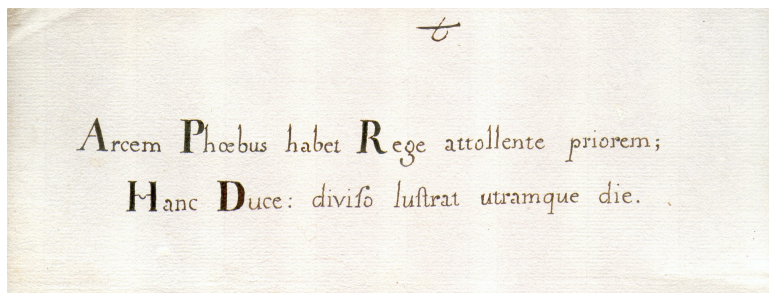 t
Arcem Phœbus habet Rege attollente priorem;
Hanc Duce: diviſo luſtrat utramque die.